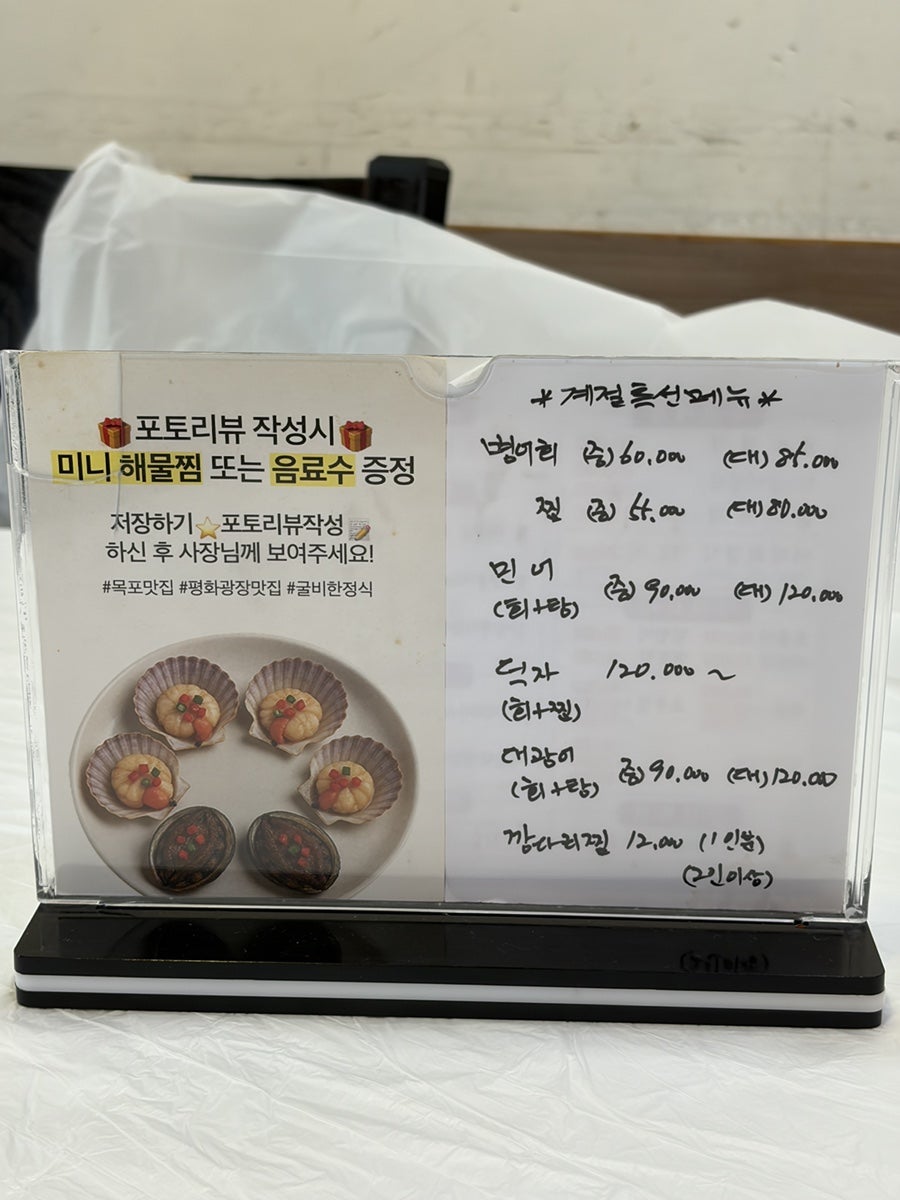 포토리뷰 작성시
미니 해물찜 또는 음료수 증정
저장하기⭐포토리뷰작성📝
하신 후 사장님께 보여주세요!
#목포맛집 #평화광장맛집 #굴비한정식
*계절특선메뉴*
병어회 (중) 60.000 (대) 85.000
찜 (중) 55.000 (대) 80.000
민어 (중) 90.000 (대) 120.000
(회+탕)
덕자 120.000 ~
(회+찜)
대광어 (중) 90.000 (대) 120.000
(회+탕)
깡다리찜 12.000 (1인분)
(2인이상)